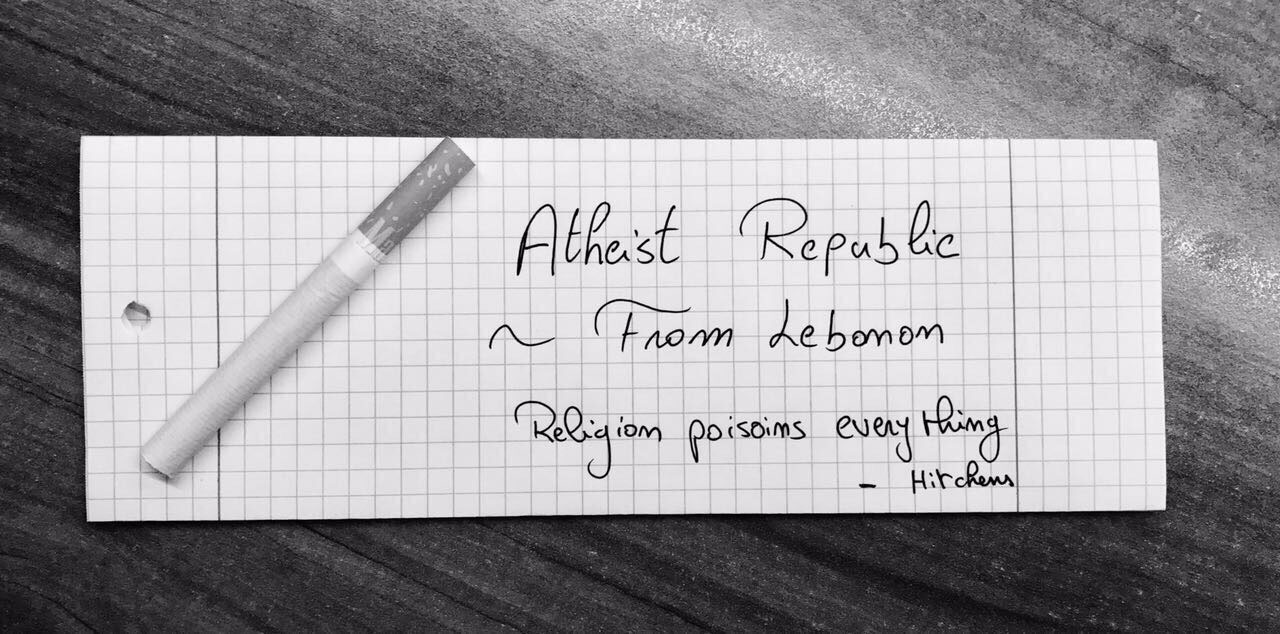 Atheist Republic
~ From Lebonon
Religion poisoins everything
- Hitchens